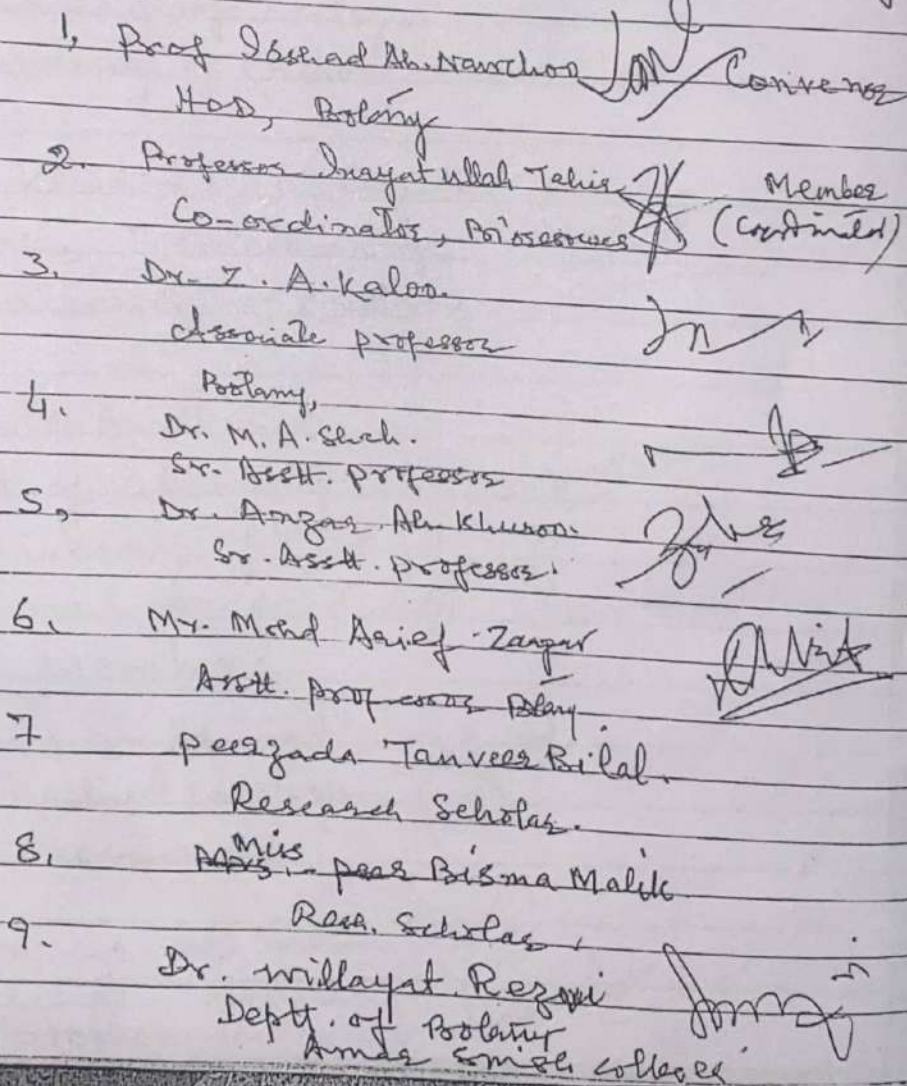 1, Prof Irshad Ah. Nawchoo Convenor
HOD, Botany
2. Professor Inayatullah Tahir Member
Co-ordinator, Bioresources (Coordinator)
3. Dr. Z. A. Kaloo.
Associate professor
Botany,
4. Dr. M. A. Shah.
Sr. Asstt. professor
5, Dr. Anzar Ah. Khuroo.
Sr. Asstt. professor.
6. Mr. Mohd Aarief Zargar
Asstt. professor Botany
7 Peerzada Tanveer Bilal.
Research Scholar.
8. Miss peer Bisma Malik
Res. Scholar,
9. Dr. Willayat Rezvi
Deptt. of Botany
Amar Singh college